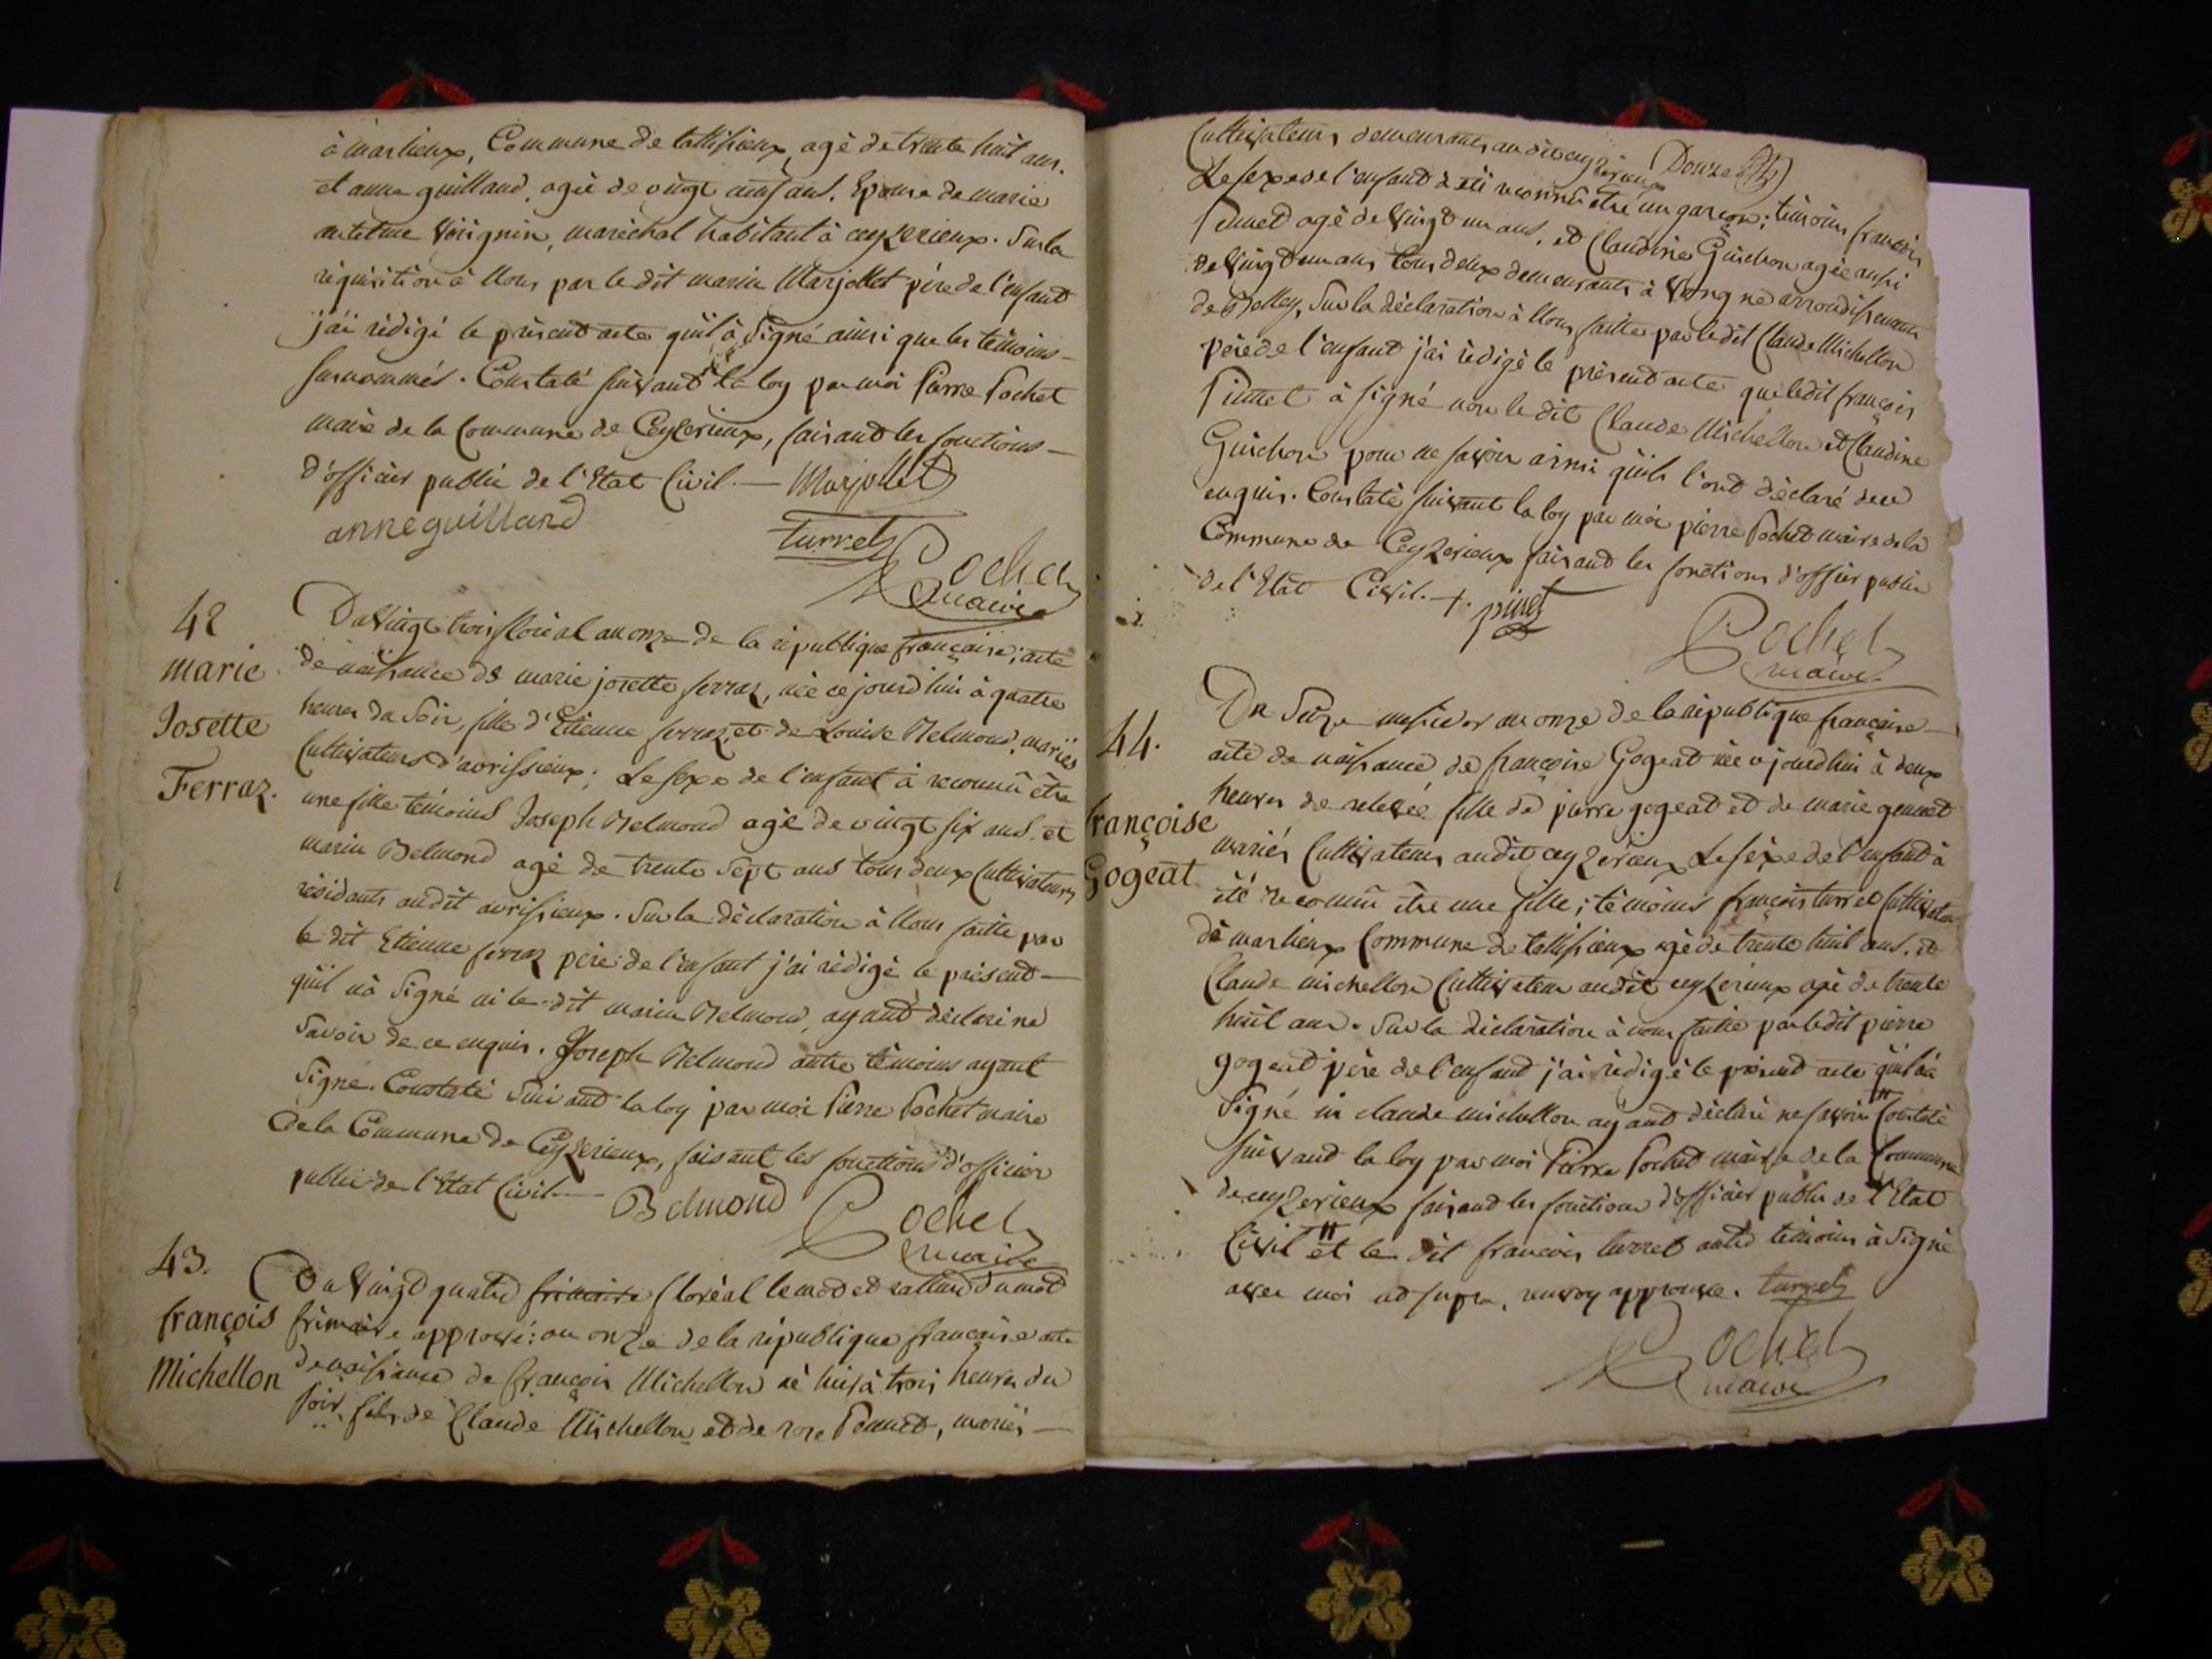 à marlieux, Commune de tallissieux, agé de trente huit ans.
et anne guilland, agée de vingt cinq ans. Epouse de marie
antelme Voirignin, maréchal habitant à ceyzerieux. Sur la
réquisition à Nous par le dit marin Marjollet père de l'enfant
j'ai rédigé le présent acte quil à Signé ainsi que les témoins
surnommés. Constaté suivant la loy par moi Pierre Pochet
maire de la Commune de Ceyzerieux, faisant les fonctions
d'officier public de l'Etat Civil. Marjollet
anne guilland turrel
Pochet
maire
42
marie
Josette
Ferraz.
Du Vingt trois floréal an onze de la république française; acte
de naissance de marie josette ferraz, née ce jourd'hui à quatre
heures du Soir, fille d'Etienne ferraz, et de Louise Belmond, mariés
Cultivateurs d'avrissieux; Le sexe de l'enfant à reconnû être
une fille témoins Joseph Belmond agé de vingt six ans. et
marin Belmond agé de trente sept ans tous deux Cultivateurs
résidants audit avrissieux. Sur la déclaration à Nous faitte par
le dit Etienne ferraz père de l'enfant j'ai rédigé le présent
quil n'à Signé ni le dit marin Belmond, ayant déclaré ne
Savoir de ce enquis. Joseph Belmond autre témoins ayant
Signé. Constaté Suivant la loy par moi Pierre Pochet maire
De la Commune de Ceyzerieux, faisant les fonctions d'officier
public de l'Etat Civil. Belmond Pochet
maire
43.
françois
Michellon
Du Vingt quatre frimaire floréal le mot et rature du mot
frimaire approuvé: an onze de la république française acte
de naissance de françois Michellon né hier à trois heures du
soir, fils de Claude Michellon et de rose Pennet, mariés
Douze
Cultivateurs demeurants au dit ceyzerieux
Le sexe de l'enfant à été reconnû être un garçon; témoins françois
agé de Vingt un ans, et Claudine Guichon agée aussi
de Vingt un ans tous deux demeurants à Vongne arrondissement
de Belley, Sur la déclaration à Nous faitte par le dit Claude Michellon
père de l'enfant j'ai rédigé le présent acte que le dit françois
à signé non le dit Claude Michellon et Claudine
Guichon pour ne savoir ainsi quils l'ont déclaré de ce
enquis. Constaté suivant la loy par moi pierre Pochet maire de la
Commune de Ceyzerieux faisant les fonctions d'officier public
de l'Etat Civil. +. pinet
Pochet
maire
44.
françoise
Gogeat
Du Seize messidor an onze de la république française
acte de naissance de françoise Gogeat née ce jourd'hui à deux
heures de relevée fille de pierre gogeat et de marie gennet
mariés Cultivateurs audit ceyzerieux Le sexe de l'enfant à
été reconnû être une fille; témoins françois turrel Cultivateur
de marlieux Commune de tallissieux agé de trente huit ans. et
Claude michellon Cultivateur audit ceyzerieux agé de trente
huit ans. Sur la déclaration à nous faitte par le dit pierre
gogeat père de l'enfant j'ai rédigé le présent acte quil n'a
Signé ni claude michellon ayant déclaré ne savoir # Constaté
suivant la loy par moi Pierre Pochet maire de la Commune
de ceyzerieux faisant les fonctions d'officier public de l'Etat
Civil # et le dit françois turrel autre témoins à Signé
avec moi ad supra, renvoy approuvé. turrel
Pochet
maire